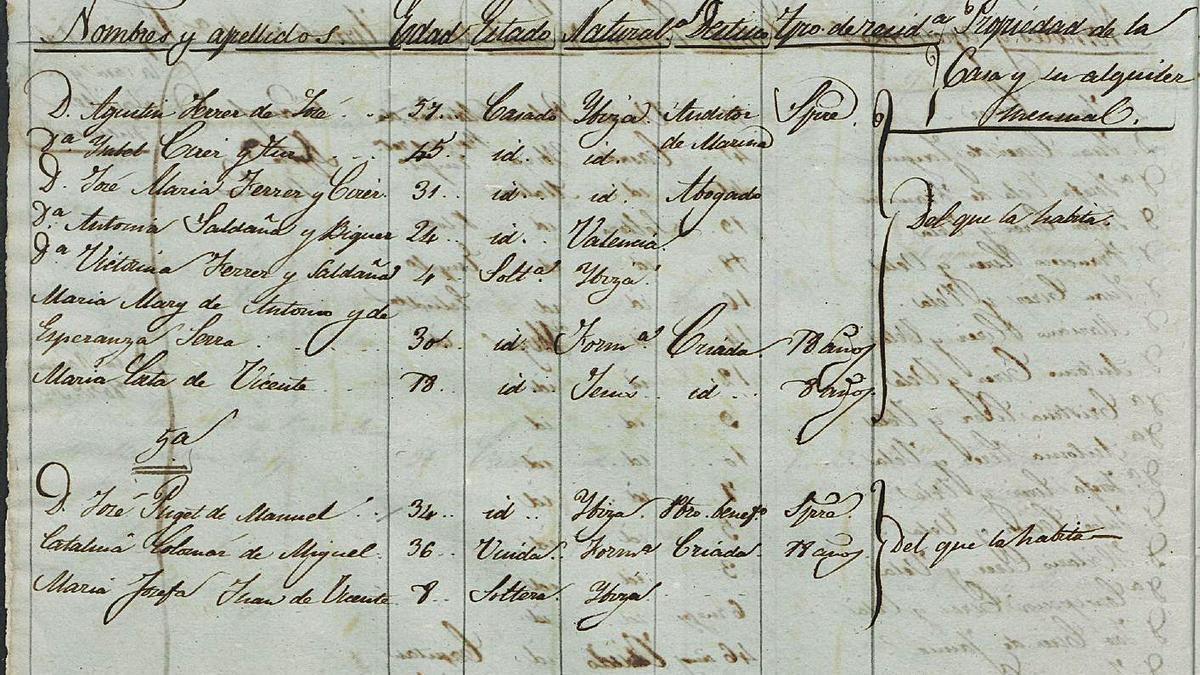 Nombres y apellidos. Edad Estado Natural.ª Destino Tpo. de resid.ª Propiedad de la
Casa y su alquiler
mensual.
D. Agustin Ferrer de José 57 Casado Ybiza Auditor Spre.
de Marina
D.ª Ysabel Cirer y Tur 45 id. id.
D. José Maria Ferrer y Cirer. 31 id id. Abogado
Del que la habita.
D.ª Antonia Saldaña y Riquer 24 id. Valencia.
D.ª Victorina Ferrer y Saldaña 4 Solt.ª Ybiza
Maria Mary de Antonio y de
Esperanza Serra 30 id. Form.ª Criada. 18 años
Maria Cata de Vicente 18 id Jesús id. 8 años.
5ª
D. José Puget de Manuel 34 id Ybiza Pbro. benef.º Spre
Catalina Colomar de Miguel. 36 Viuda. Form.ª Criada. 18 años
Del que la habita
Maria Josefa Juan de Vicente 8 Soltera. Ybiza